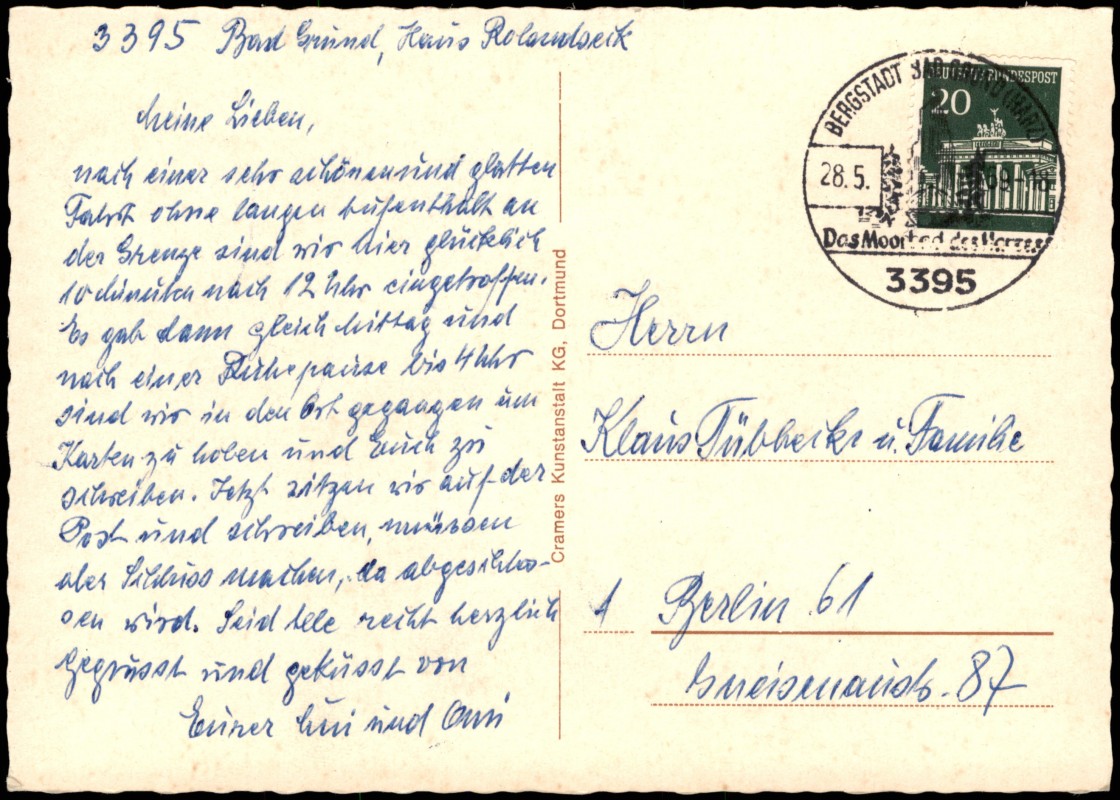 3395 Bad Grund, Haus Rolandseck
Meine Lieben,
nach einer sehr schönen und glatten
Fahrt ohne langen Aufenthalt an
der Grenze sind wir hier glücklich
10 Minuten nach 12 Uhr eingetroffen.
Es gab dann gleich Mittag und
nach einer Ruhepause bis 4 Uhr
sind wir in den Ort gegangen um
Karten zu holen und Euch zu
schreiben. Jetzt sitzen wir auf der
Post und schreiben, müssen
aber Schluss machen, da abgeschlos-
sen wird. Seid Alle recht herzlich
gegrüsst und geküsst von
Eurer Mui und Omi
Cramers Kunstanstalt KG, Dortmund
BERGSTADT BAD GRUND (HARZ)
DEUTSCHE BUNDESPOST
20
28.5. 69-18
Das Moorbad des Harzes
3395
Herrn
Klaus Tübbecke u. Familie
1 Berlin 61
Gneisenaustr. 87